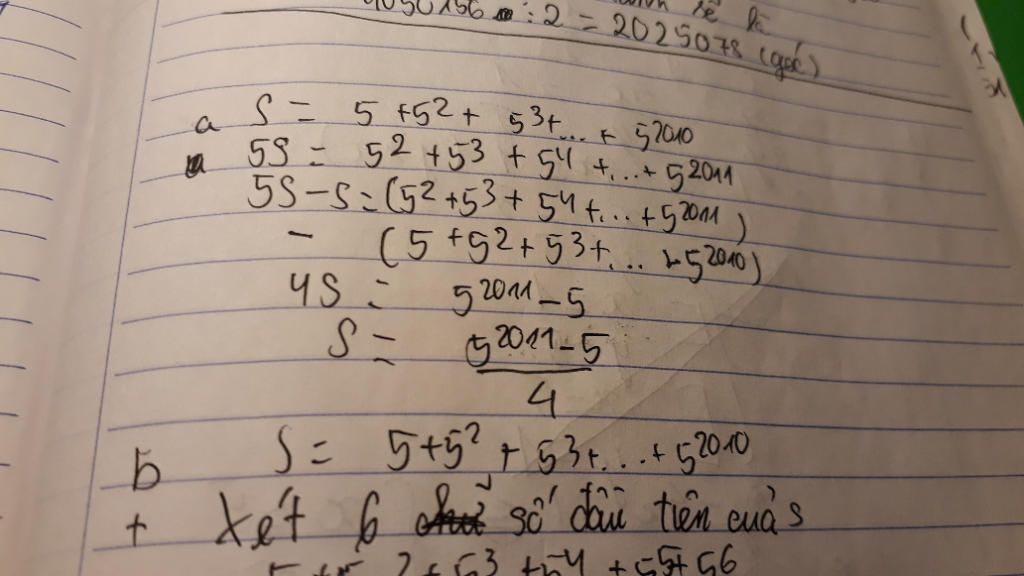 4050156 : 2 = 2025078 (góc)
a S = 5 + 5² + 5³ + ... + 5²⁰¹⁰
5S = 5² + 5³ + 5⁴ + ... + 5²⁰¹¹
5S - S = (5² + 5³ + 5⁴ + ... + 5²⁰¹¹)
- (5 + 5² + 5³ + ... + 5²⁰¹⁰)
4S = 5²⁰¹¹ - 5
S = 5²⁰¹¹ - 5
4
b S = 5 + 5² + 5³ + ... + 5²⁰¹⁰
+ Xét 6 số đầu tiên của S
5³ + 5⁴ + 5⁵ + 5⁶